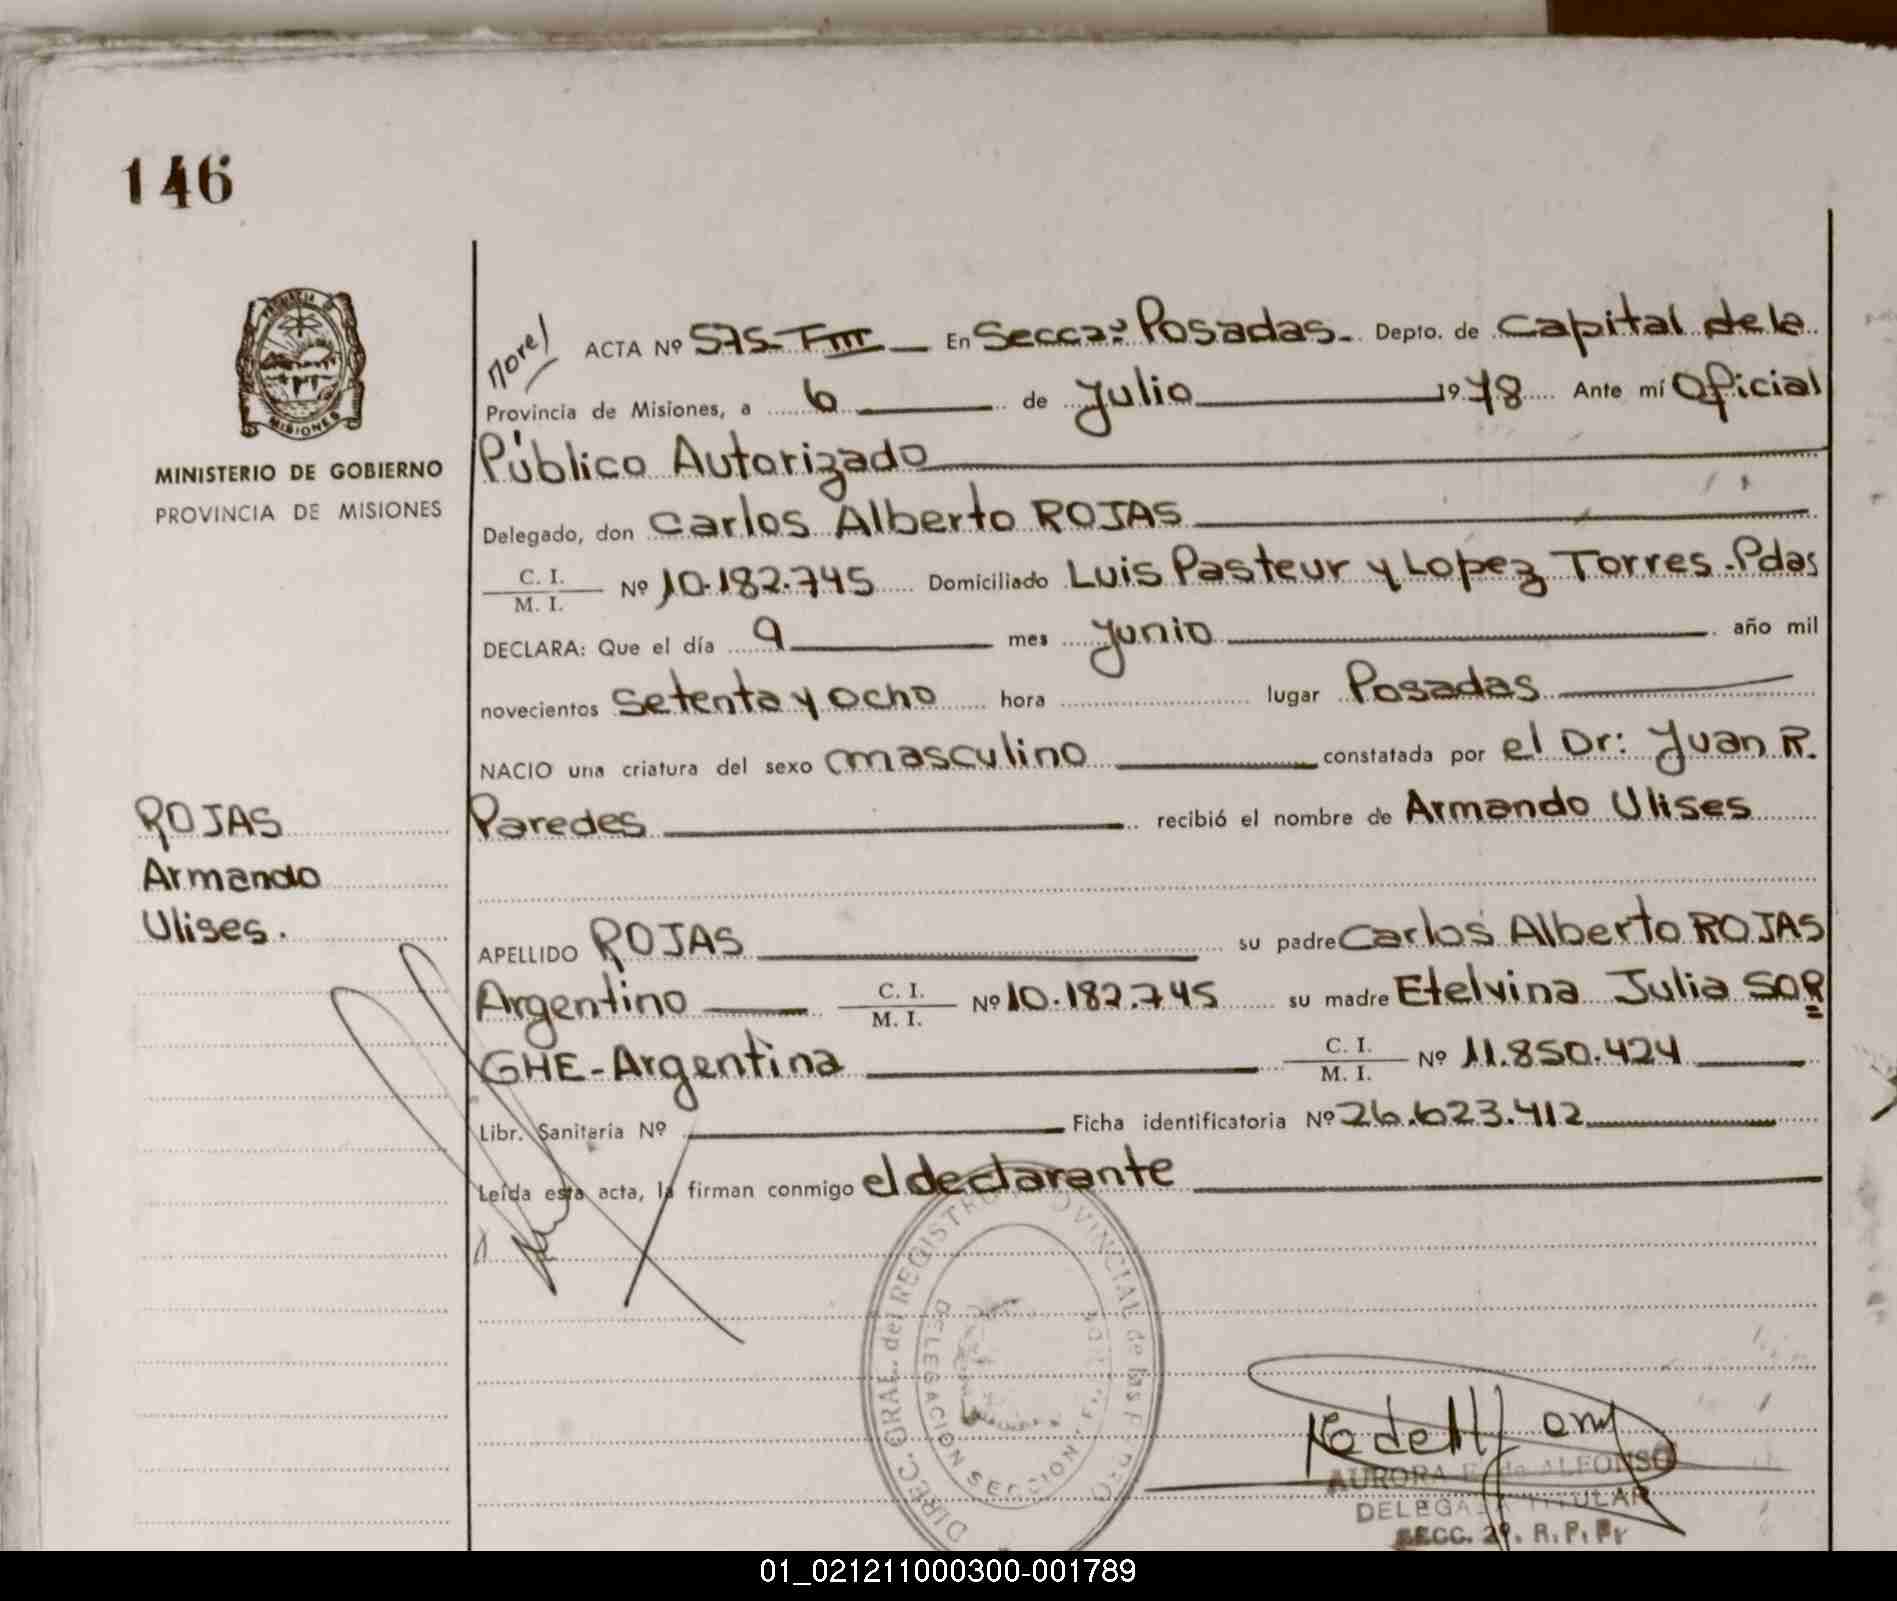 146
PROVINCIA DE
MISIONES
MINISTERIO DE GOBIERNO
PROVINCIA DE MISIONES
ACTA Nº 575-TIII En Secc 2ª Posadas. Depto. de Capital de la
Provincia de Misiones, a 6 de Julio 1978 Ante mí Oficial
Público Autorizado
Delegado, don Carlos Alberto ROJAS
C. I.
M. I. Nº 10.182.745 Domiciliado Luis Pasteur y Lopez Torres-Pdas
DECLARA: Que el día 9 mes Junio año mil
novecientos setenta y ocho hora lugar Posadas
NACIO una criatura del sexo masculino constatada por el Dr: Juan R.
Paredes recibió el nombre de Armando Ulises
ROJAS
Armando
Ulises.
APELLIDO ROJAS su padre Carlos Alberto ROJAS
Argentino C. I.
M. I. Nº 10.182.745 su madre Etelvina Julia SOR
GHE-Argentina C. I.
M. I. Nº 11.850.424
Libr. Sanitaria Nº Ficha identificatoria Nº 26.623.412
Leída esta acta, la firman conmigo el declarante
DIREC. GRAL. del REGISTRO PROVINCIAL de las
DELEGACION SECCION
AURORA E. de ALFONSO
DELEGADA TITULAR
SECC. 2ª. R. P. P.
01_021211000300-001789